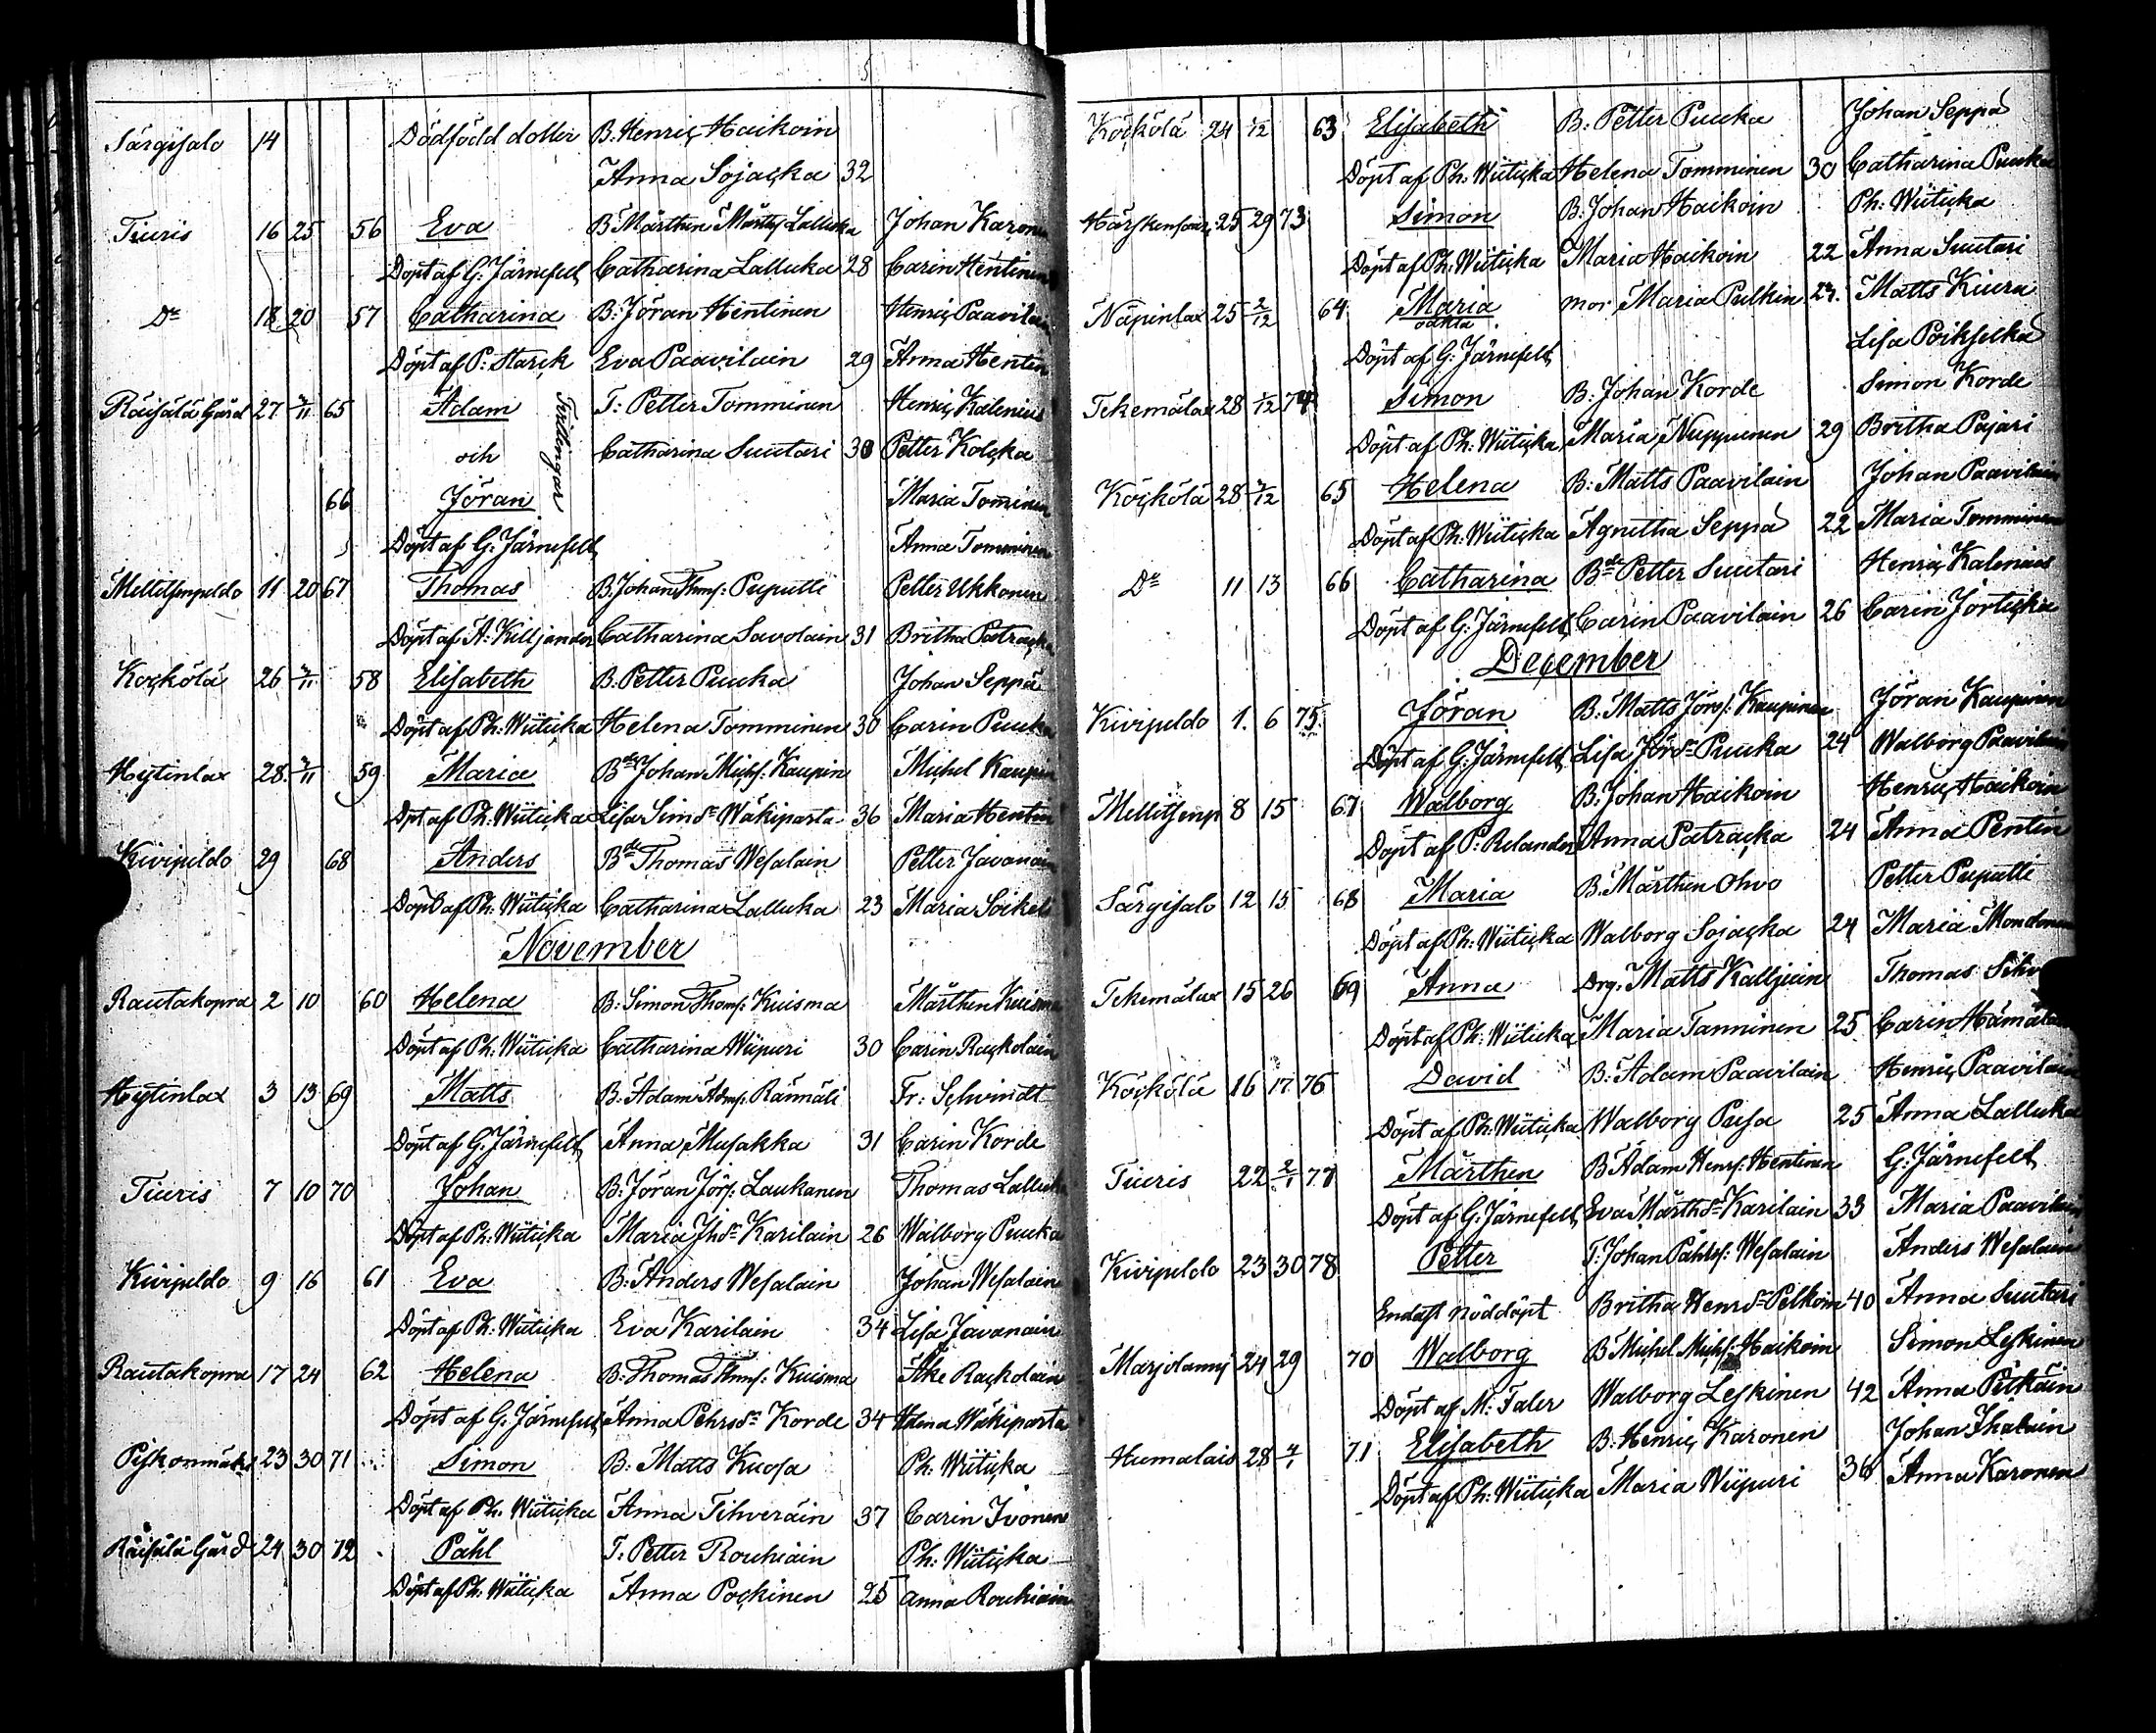 Särgisalo 14 Dödfödd dotter B. Henric Haikoin
Anna Sojacka 32
Tiuris 16 25 56 Eva B. Mårthen Mårts. Lallucka Johan Karonen
Döpt af G: Järnefelt Catharina Lalluka 28 Carin Hentinen
Do 18 20 57 Catharina B. Jöran Hentinen Henric Paavilain
Döpt af P: Starck Eva Paavilain 29 Anna Hentin
Räisälä Gård 27 2/11 65 Adam T: Petter Tomminen Henric Kalenius
och Tvillingar Catharina Suutari 30 Petter Kolcka
66 Jöran Maria Tominen
Döpt af G: Järnefelt Anna Tomminen
Mellitsenpeldo 11 20 67 Thomas B. Johan Thms: Puputti Petter Ukkonen
Döpt af A: Killjander Catharina Savolain 31 Britha Patracka
Köckölä 26 2/11 58 Elisabeth B. Petter Puucka Johan Seppä
Döpt af Ph: Wiiticka Helena Tomminen 30 Carin Puucka
Hytinlax 28 2/11 59 Maria Bde Johan Michs: Kaupin Michel Kaupin
Dpt af Ph: Wiiticka Lisa Simsdr Wäkiparta 36 Maria Hentin
Kivipeldo 29 68 Anders Bde Thomas Wesalain Petter Javanain
Döpt af Ph: Wiiticka Catharina Lalluka 23 Maria Soikeli
November
Rautakopra 2 10 60 Helena B: Simon Thoms: Kuisma Mårthen Kuisma
Döpt af Ph: Wiiticka Catharina Wiipuri 30 Carin Rackolain
Hytinlax 3 13 69 Matts B: Adam Adms. Rännäli Fr: Schvindt
Döpt af G: Järnefelt Anna Musakka 31 Carin Korde
Tiuris 7 10 70 Johan B: Jöran Jörs: Laukanen Thomas Lalluka
Döpt af Ph: Wiiticka Maria Jhsdr Karilain 26 Walborg Puucka
Kivipeldo 9 16 61 Eva B: Anders Wesalain Johan Wesalain
Döpt af Ph: Wiiticka Eva Karilain 34 Lisa Javanain
Rautakopra 17 24 62 Helena B: Thomas Thms: Kuisma Ake Rackolain
Döpt af G: Järnefelt Anna Pehrsdr Korde 34 Helena Wäkiparta
23 30 71 Simon B: Matts Kuosa Ph: Wiiticka
Döpt af Ph: Wiiticka Anna Tihveräin 37 Carin Ivonen
Räisälä Gård 24 30 72 Påhl T: Petter Rouhiain Ph: Wiiticka
Döpt af Ph: Wiiticka Anna Pockinen 25 Anna Rouhiain
Köckölä 24 1/12 63 Elisabeth B: Petter Puucka Johan Seppä
Döpt af Ph: Wiiticka Helena Tomminen 30 Catharina Puucka
25 29 73 Simon B: Johan Haikoin Ph: Wiiticka
Döpt af Ph: Wiiticka Maria Haikoin 22 Anna Suutari
Näpinlax 25 2/12 64 Maria mor Maria Pulkin 27. Matts Kiura
oäkta
Döpt af G: Järnefelt Lisa Poikselkä
Tekemälax 28 1/12 74 Simon B: Johan Korde Simon Korde
Döpt af Ph: Wiiticka Maria Nuppunen 29 Britha Pajari
Köckölä 28 2/12 65 Helena B: Matts Paavilain Johan Paavilain
Döpt af Ph: Wiiticka Agnitha Seppä 22 Maria Tomminen
Do 11 13 66 Catharina Bde Petter Suutari Henric Kalenius
Döpt af G: Järnefelt Carin Paavilain 26 Carin Jorticka
December
Kivipeldo 1. 6 75 Jöran B: Matts Jörs: Kaupinen Jöran Kaupinen
Döpt af G: Järnefelt Lisa Jörsdr Puucka 24 Walborg Paavilain
Mellitsenp 8 15 67 Walborg B: Johan Haikoin Henric Haikoin
Döpt af P: Relander Anna Patracka 24 Anna Pentin
Särgisalo 12 15 68 Maria B. Mårthen Ohvo Petter Puputti
Döpt af Ph: Wiiticka Walborg Sojacka 24 Maria Mondonen
Tekemälax 15 26 69 Anna Drg. Matts Kalljuin Thomas
Döpt af Ph: Wiiticka Maria Tanninen 25 Carin
Köckölä 16 17 76 David B: Adam Paavilain Henric Paavilain
Döpt af Ph: Wiiticka Walborg Pusa 25 Anna Lalluka
Tiuris 22 2/1 77 Mårthen B: Adam Henrs: Hentinen G: Järnefelt
Döpt af G: Järnefelt Eva Mårthsdr Karilain 33 Maria Paavilain
Kivipeldo 23 30 78 Petter T: Johan Påhls: Wesalain Anders Wesalain
Endast nöddöpt Britha Henrsdr Pelkoin 40 Anna Suutari
Marjolamj 24 29 70 Walborg B Michel Michs: Haikoin Simon Lykinen
Döpt af M: Faler Walborg Leskinen 42 Anna Pitkäin
Humalais 28 4/1 71 Elisabeth B: Henric Karonen Johan Ihalain
Döpt af Ph: Wiiticka Maria Wiipuri 36 Anna Karonen